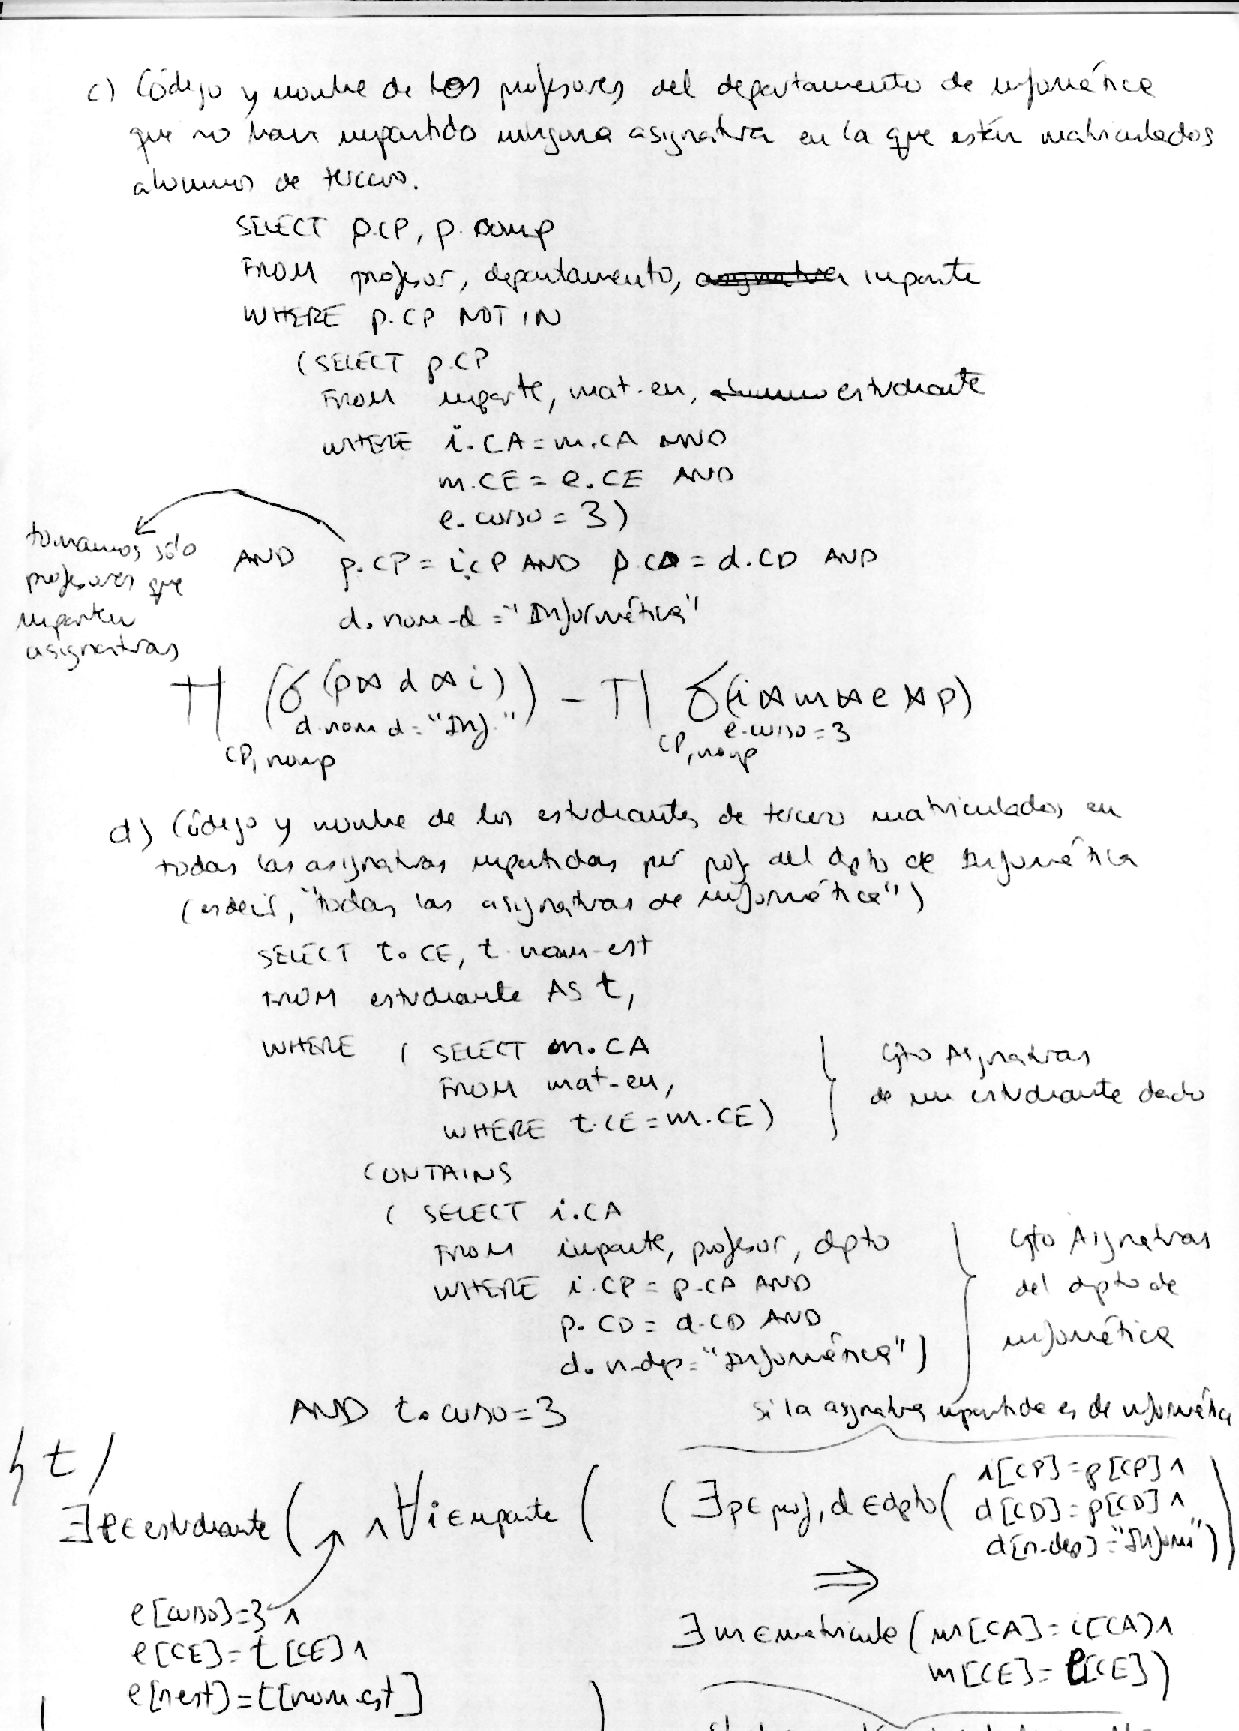 c) Código y nombre de los profesores del departamento de informática
que no han impartido ninguna asignatura en la que estén matriculados
alumnos de tercero.
SELECT p.CP, p.nomp
FROM profesor, departamento, asignatura imparte
WHERE p.CP NOT IN
(SELECT p.CP
FROM imparte, mat-en, alumno estudiante
WHERE i.CA = m.CA AND
m.CE = e.CE AND
e.curso = 3)
AND p.CP = i.CP AND p.CD = d.CD AND
d.nom-d = "Informática"
tomamos sólo
profesores que
imparten
asignaturas
Π (σ (p ⋈ d ⋈ i)) - Π σ (i ⋈ m ⋈ e ⋈ p)
d.nom d = "Inf." e.curso = 3
CP, nomp CP, nomp
d) Código y nombre de los estudiantes de tercero matriculados en
todas las asignaturas impartidas por prof del dpto de Informática
(es decir, "todas las asignaturas de informática")
SELECT t.CE, t.nom-est
FROM estudiante AS t,
WHERE (SELECT m.CA
FROM mat-en,
WHERE t.CE = m.CE)
Cjto Asignaturas
de un estudiante dado
CONTAINS
(SELECT i.CA
FROM imparte, profesor, dpto
WHERE i.CP = p.CA AND
p.CD = d.CD AND
d.n-dep = "Informática")
Cjto Asignaturas
del dpto de
informática
AND t.curso = 3
si la asignatura impartida es de informática
{ t /
∃ e ∈ estudiante ( ∧ ∀ i ∈ imparte ( ( ∃ p ∈ prof, d ∈ dpto (
i[CP] = p[CP] ∧
d[CD] = p[CD] ∧
d[n-dep] = "Inform"))
⇒
e[curso] = 3 ∧
e[CE] = t[CE] ∧
e[nest] = t[nom-est]
∃ m ∈ matricula (m[CA] = i[CA) ∧
m[CE] = e[CE])
)